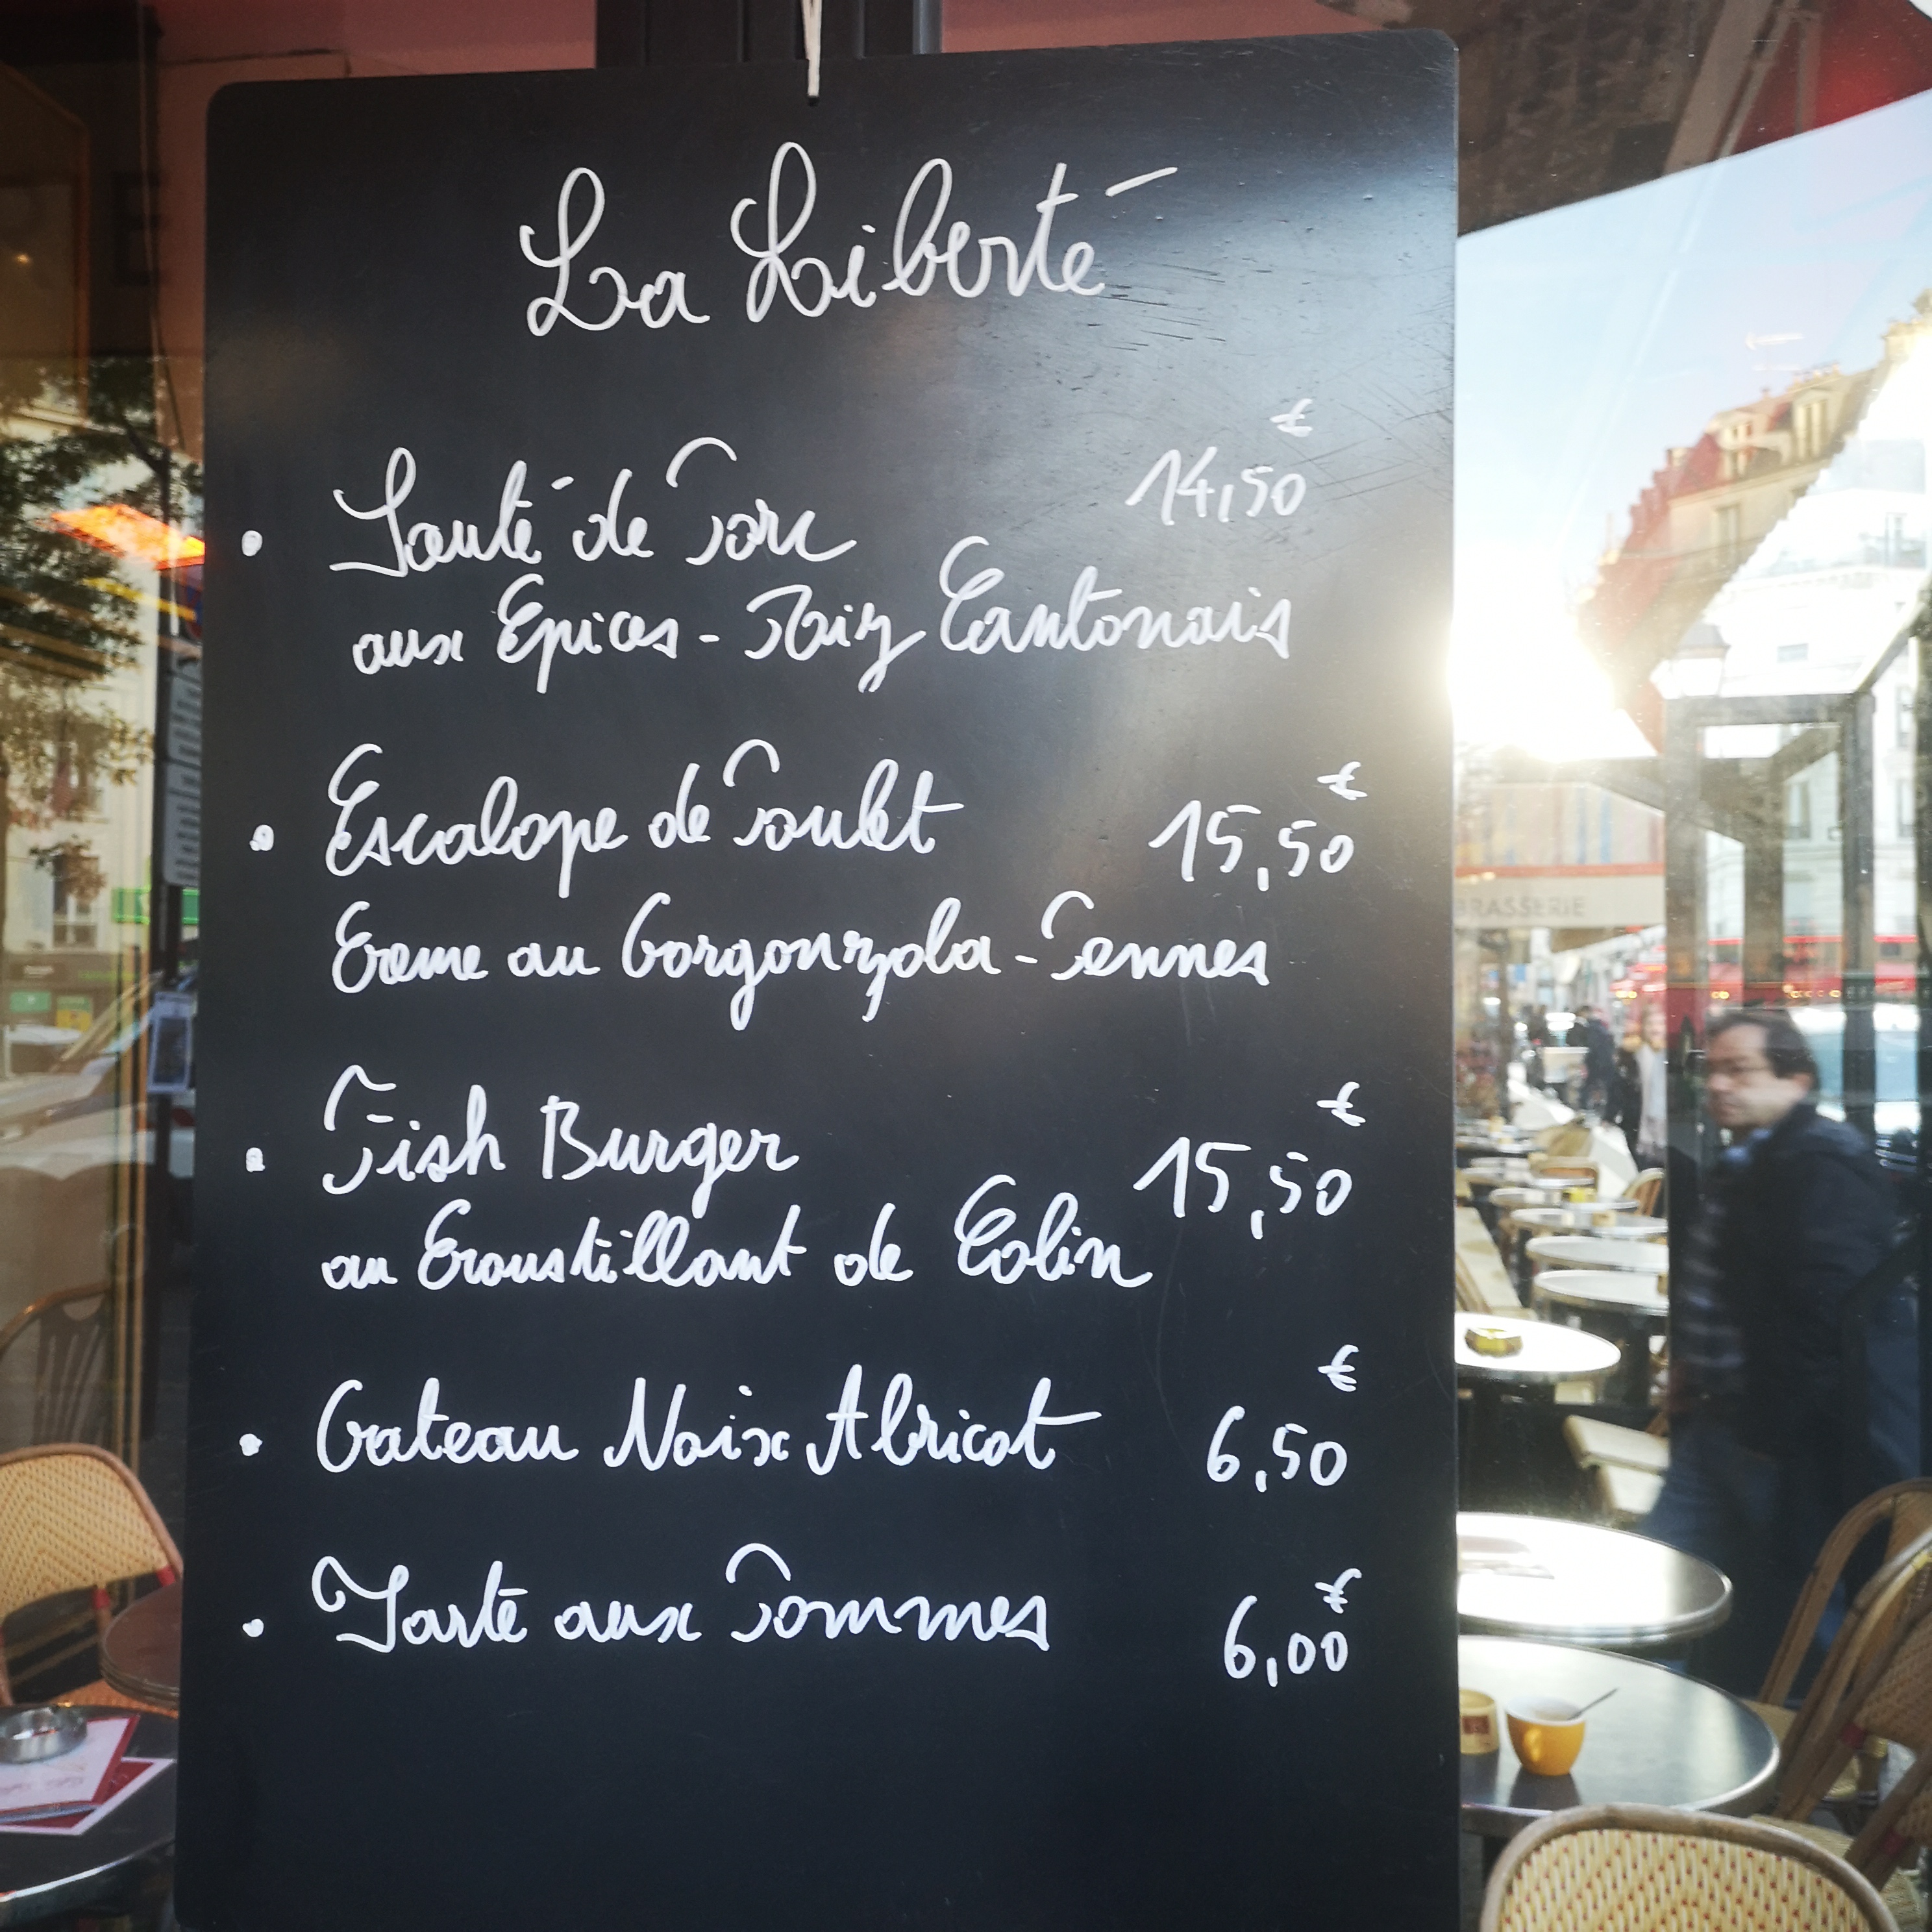 La Liberté
€
• Sauté de Porc 14,50
aux Epices - Riz Cantonais
€
• Escalope de Poulet 15,50
Creme au Gorgonzola - Pennes
€
• Fish Burger 15,50
au Croustillant de Colin
€
• Gateau Noix Abricot 6,50
€
• Tarte aux Pommes 6,00
BRASSERIE